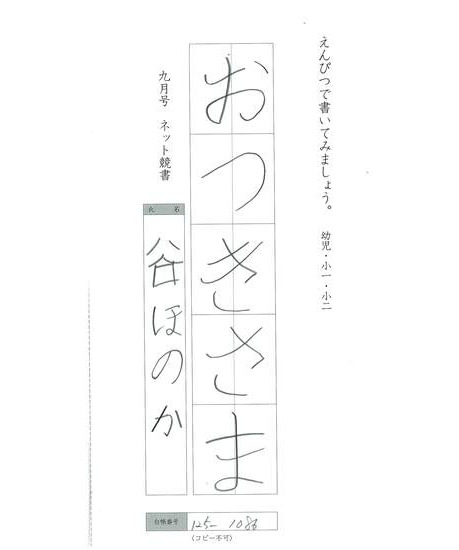 えんぴつで書いてみましょう。　幼児・小一・小二
おつきさま
九月号　ネット競書
氏名
谷ほのか
台帳番号 125-1086
(コピー不可)